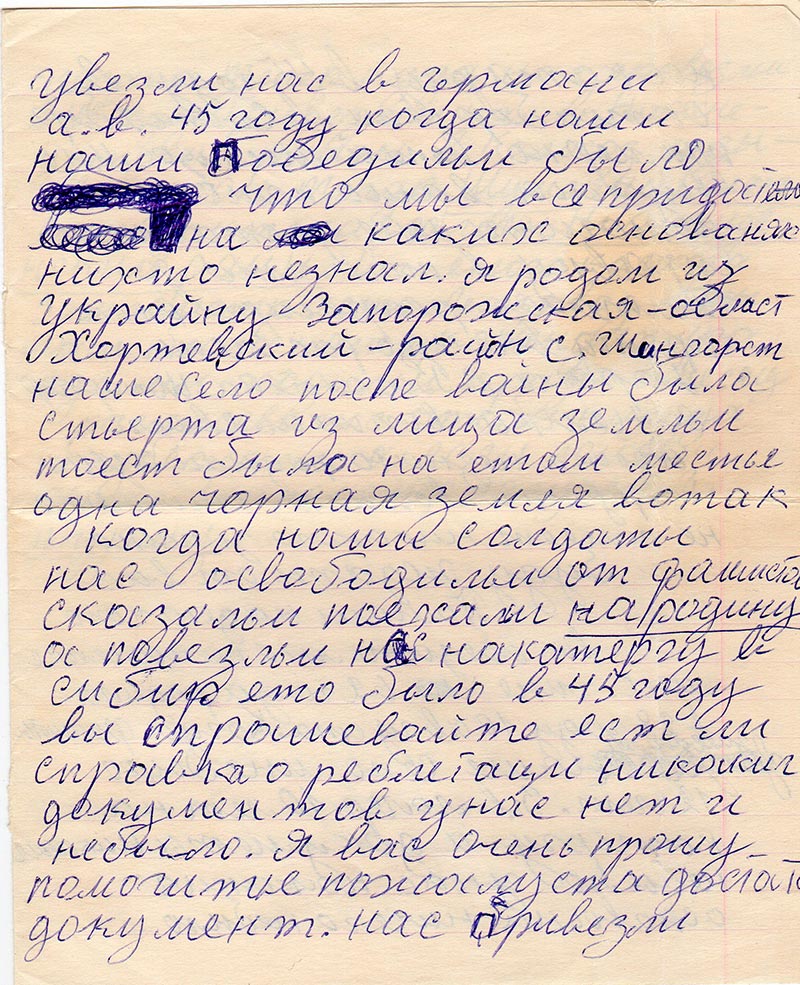 увезли нас в германи
а.в. 45 году когда наши
наши Победильи было
что мы все
на каких основаняю
нихто незнал. я родом из
украйну Запорожская-област
Хортевский-район с.
наше село после вайны была
стьерта из лица земльи
тоест была на етом местье
одна чорная земля вотак
когда наши солдаты
нас освободильи от фашистов
сказальи поехали на родину
а повезльи нас накатергу в
сибир ето было в 45 году
вы спрашевайте ест ли
справка о реблетаци никокиг
документов унас нет и
небыло. Я вас очень прошу
помочитье пожалуста достать
документ. нас Привезли